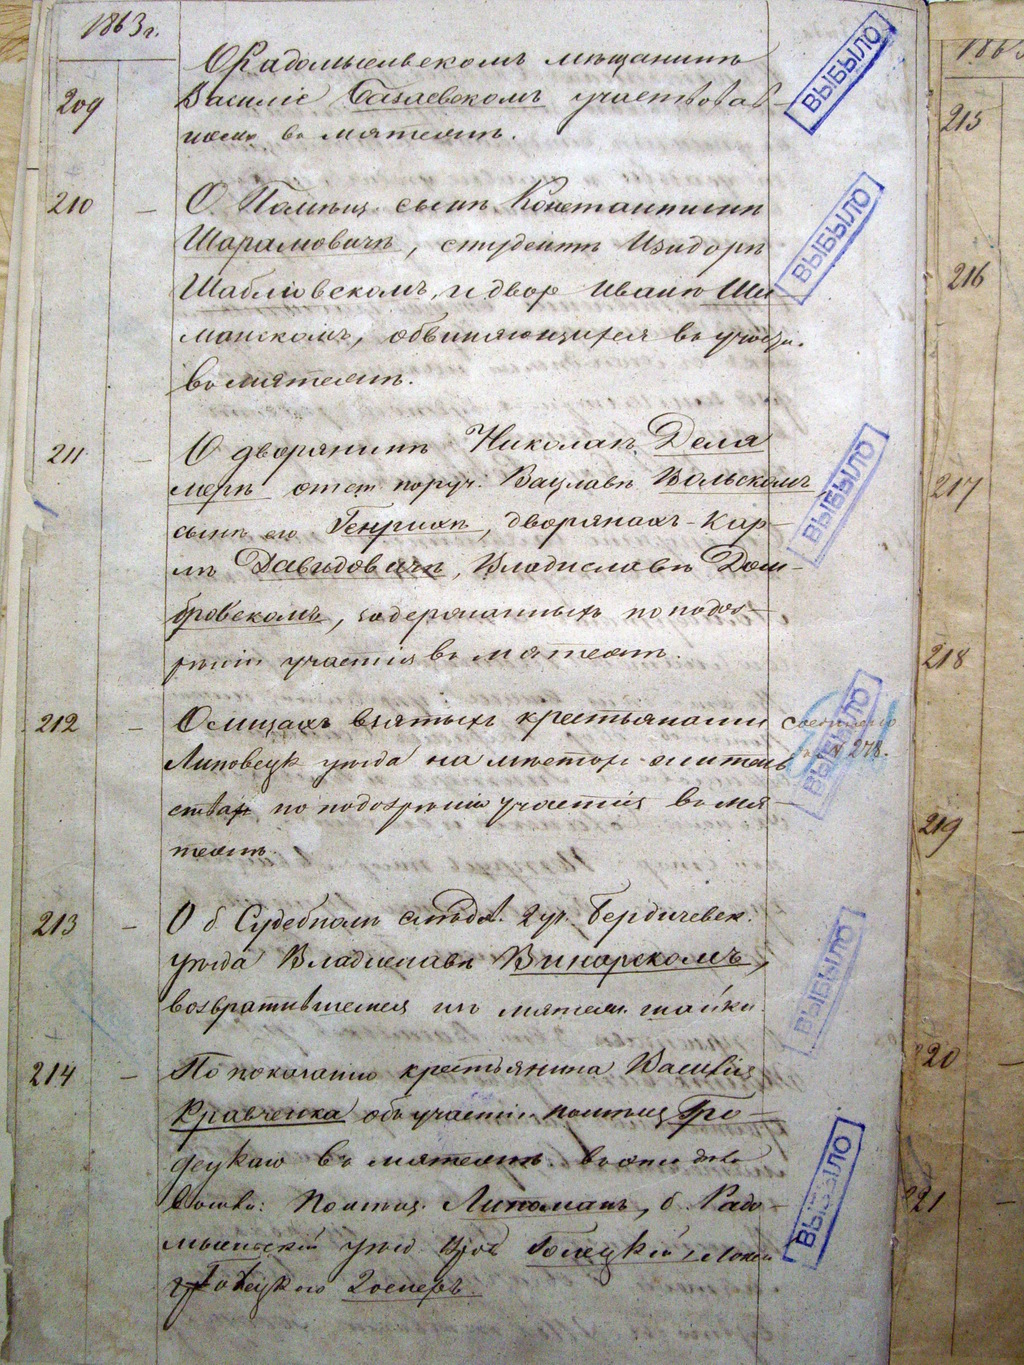 1863 г.
209
О Радомысльскомъ мѣщанинѣ
Василіе Базаевскомъ участвовав-
шемъ въ мятежѣ.
ВЫБЫЛО
210 —
О Помѣщ. сынѣ Константинѣ
Шарамовичѣ, студентѣ Изидорѣ
Шабліовскомъ, и двор Иванѣ Ши
манскомъ, обвиняющихся въ участи.
въ мятежѣ.
ВЫБЫЛО
211 —
О дворянинѣ Николаѣ Дела
мерѣ отст. поруч: Вацлавѣ Вольскомъ
сынѣ его Генрихѣ, дворянахъ Кар-
лѣ Давидовичѣ, Владиславѣ Дом-
бровскомъ, задержанныхъ по подоз-
рѣнію участія въ мятежѣ.
ВЫБЫЛО
212 —
О лицахъ взятыхъ крестьянами
Липовецк уѣзда на мѣстахъ жительс
ствах по подозрѣнію участія въ мя-
тежѣ.
№ 278.
ВЫБЫЛО
213 —
О б. Судебномъ слѣдов. 2 уч. Бердичевск.
уѣзда Владиславѣ Винарскомъ,
возвратившемся изъ мятежн. шайки.
ВЫБЫЛО
214 —
По показанію крестьянина Василія
Кравченка объ участіи помѣщ Гро-
децкаго въ мятежѣ.
Помѣщ. Липоманъ, б. Радо-
мысльскій уѣзд Голецкій,
ВЫБЫЛО
1863
215
216
217
218
219
220 —
221 —